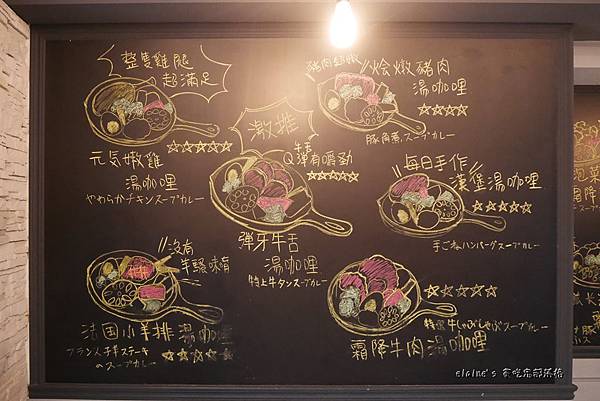 整隻雞腿
超滿足
元気嫩雞
湯咖哩
やわらかチキンスープカレー
燴燉豬肉
湯咖哩
豚角煮スープカレー
激推
Q彈有嚼勁
彈牙牛舌
湯咖哩
特上牛タンスープカレー
每日手作
漢堡湯咖哩
手ごねハンバーグスープカレー
沒有
羊騷味唷
法国小羊排湯咖哩
フランス子羊ステーキ
のスープカレー
特選牛しゃぶしゃぶスープカレー
霜降牛肉湯咖哩
泡菜
霜降
elaine's 食吃完部落格